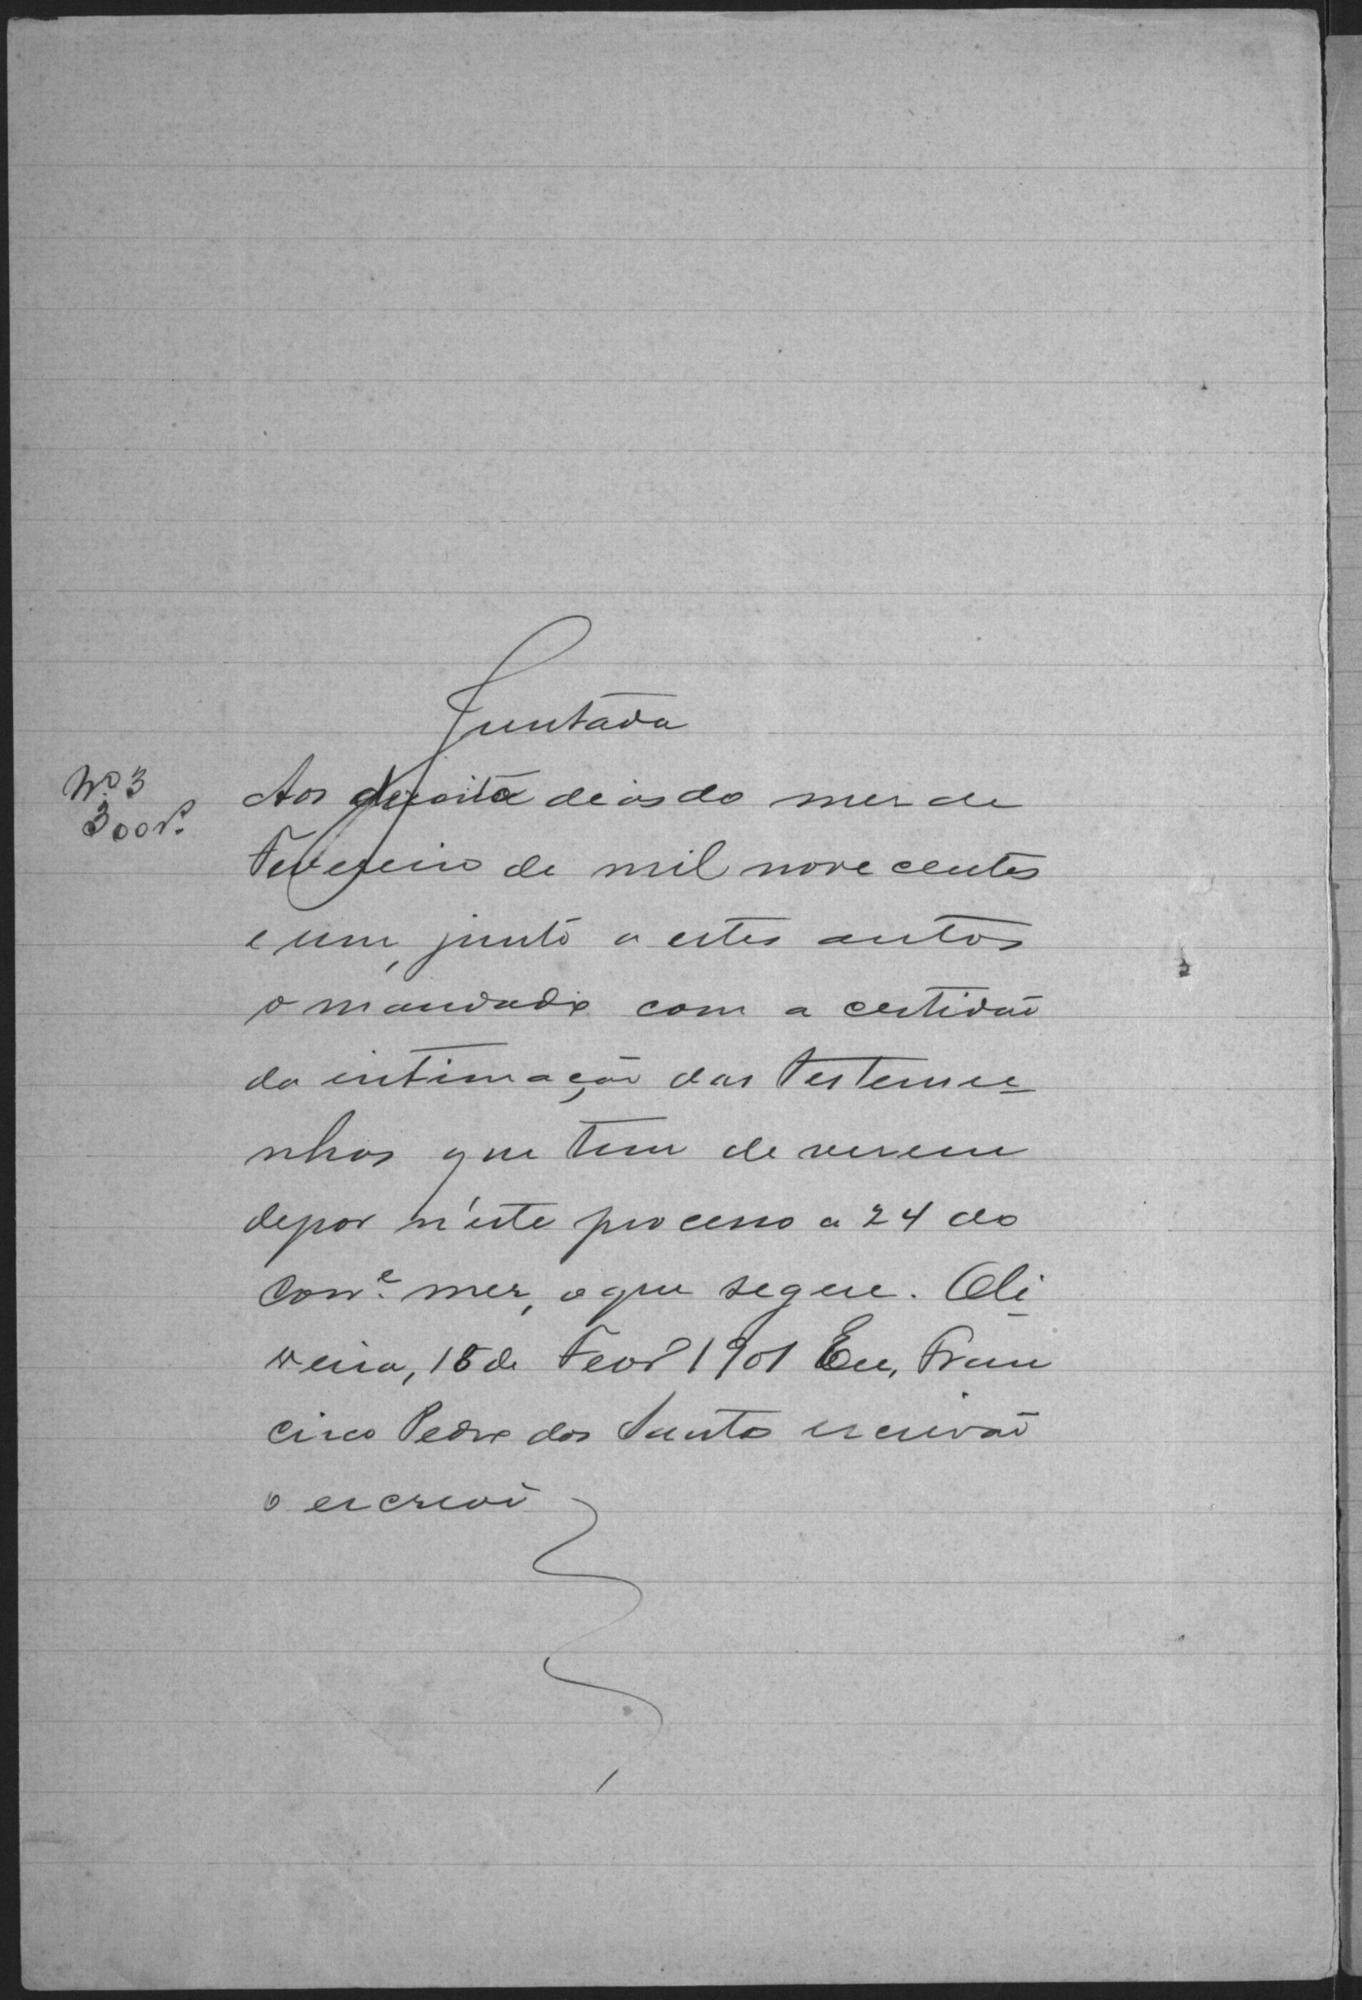 Juntada
Nº 3
300 rs.
Aos dezoito dias do mez de
Fevereiro de mil nove centos
e um, junto a estes autos
o mandado com a certidão
da intimação das testemu-
nhas que tem de virem
depor n'este processo a 24 do
corr.e mez, o que segue. Oli-
veira, 18 de Fevr.º 1901 Eu, Fran
cisco Pedro dos Santos escrivão
o escrevi